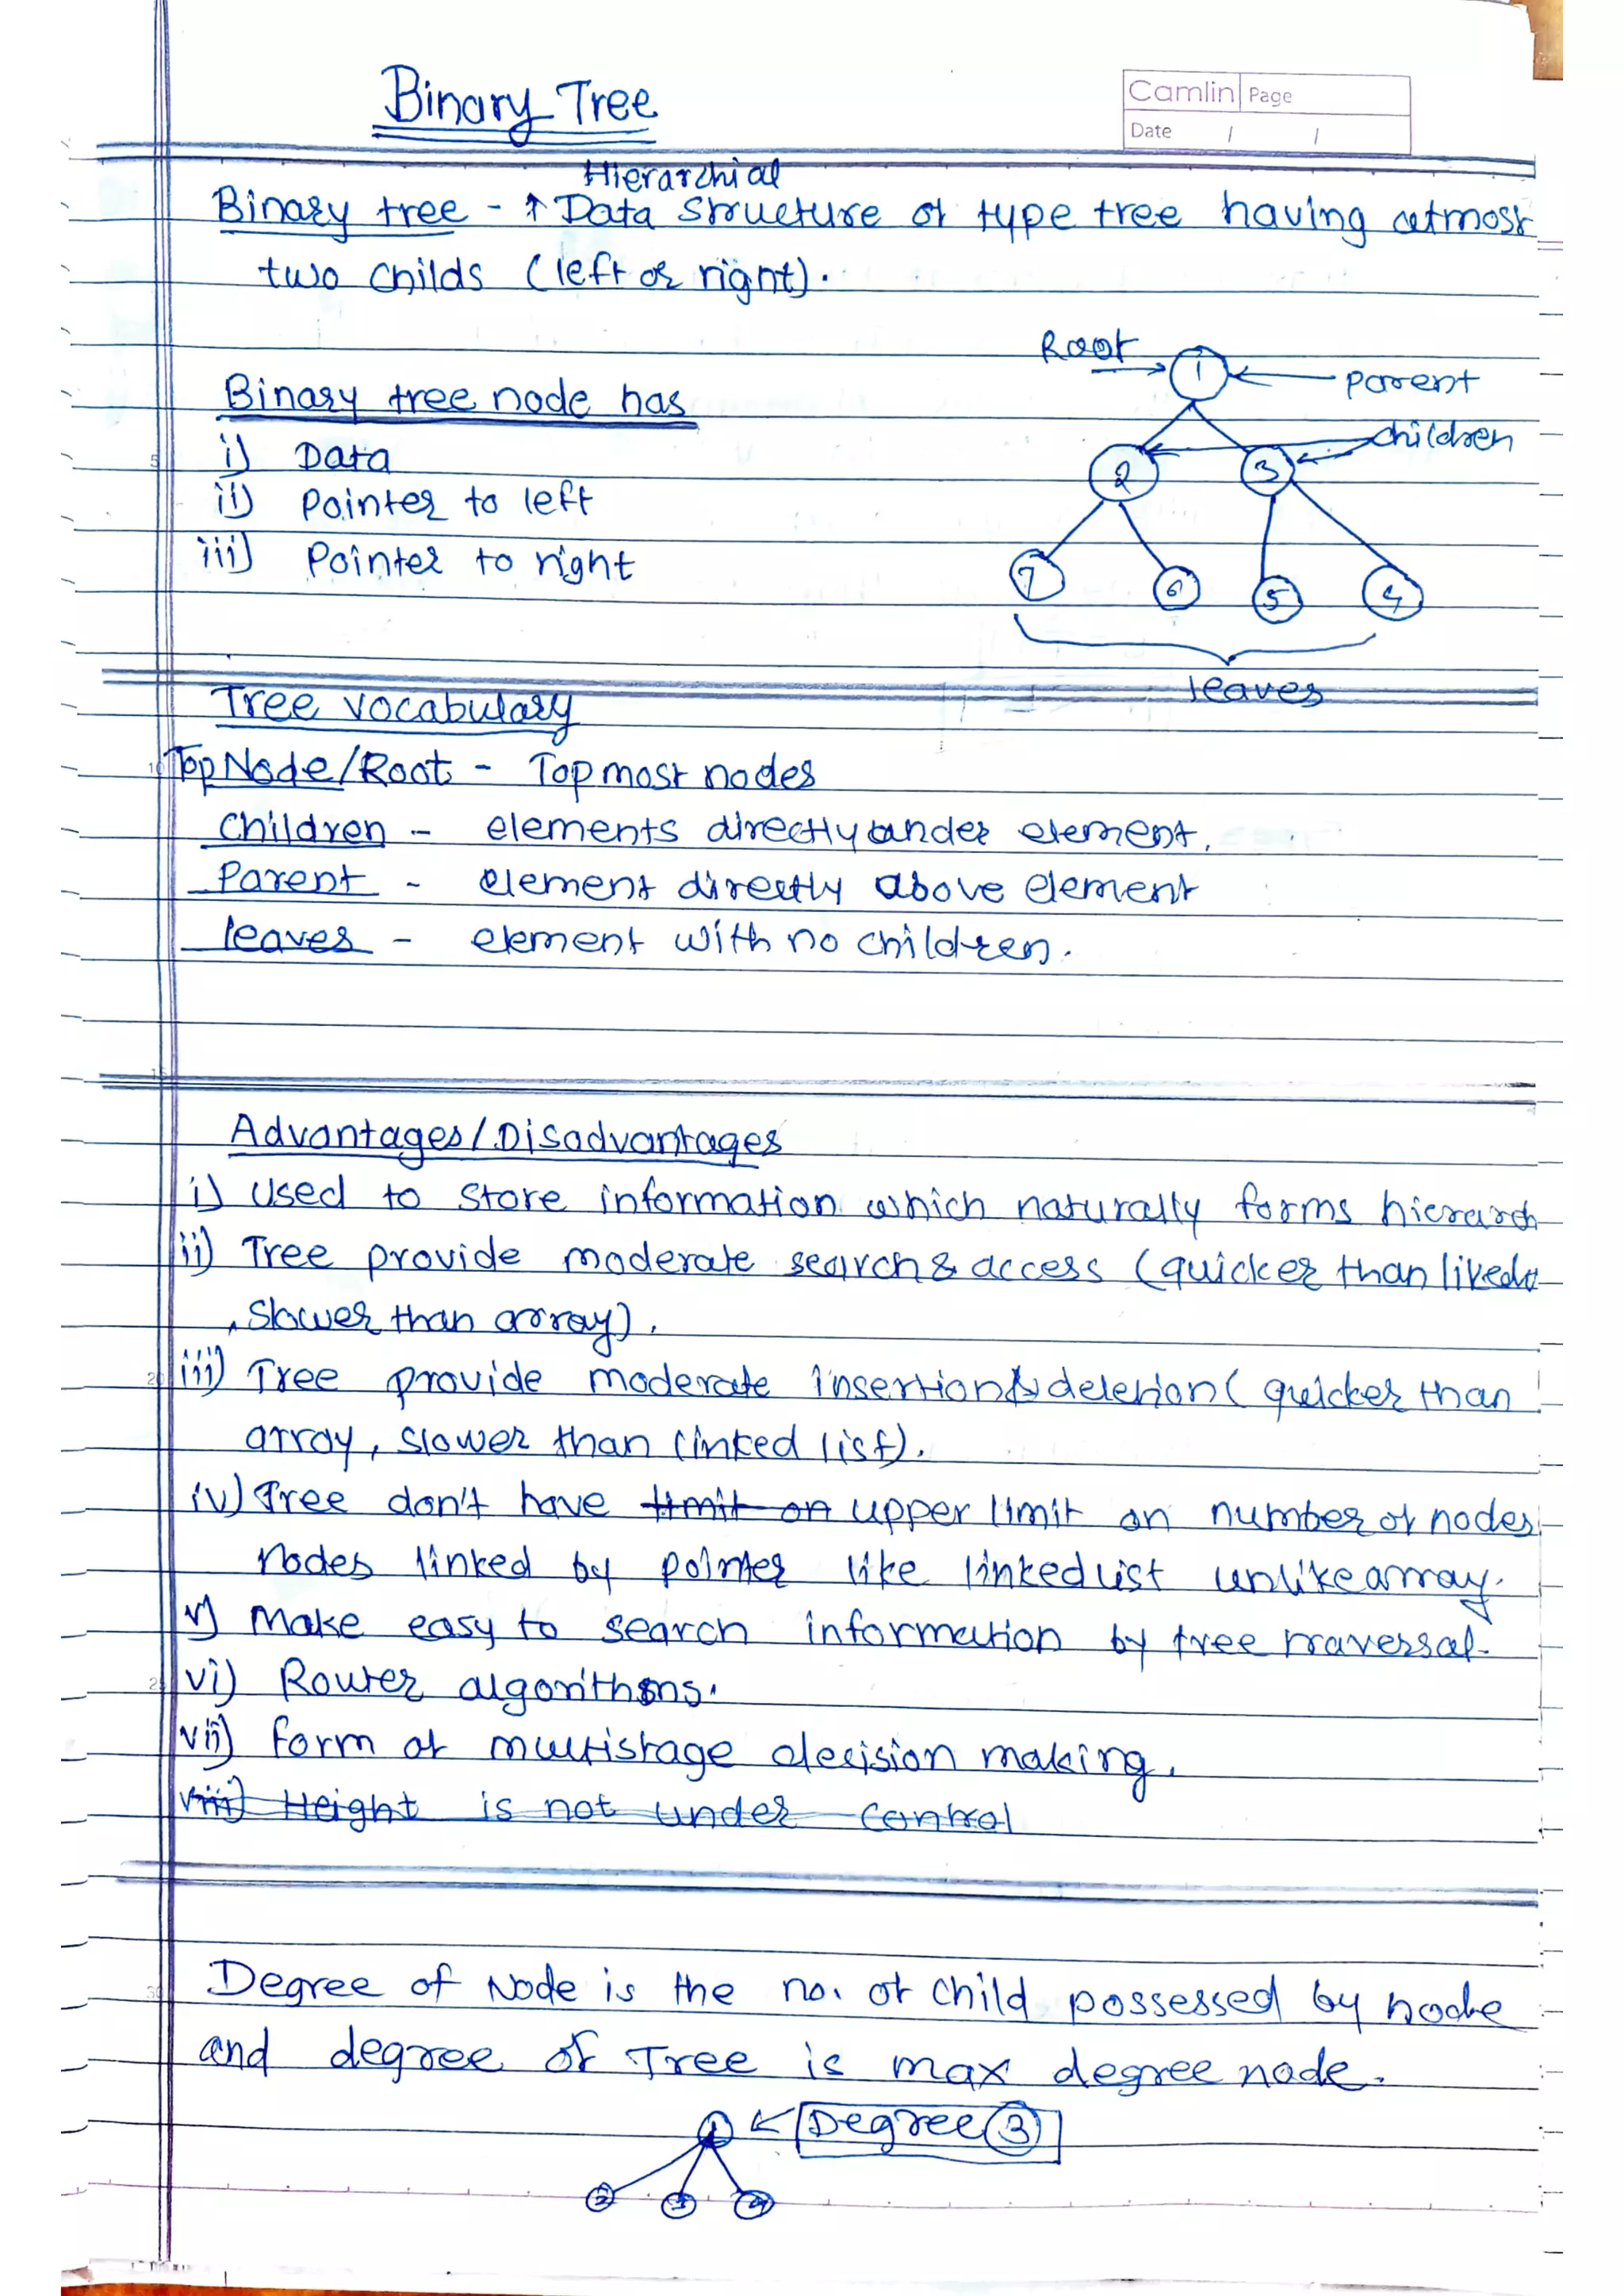 Binary Tree
Camlin Page
Date / /
Hierarchial
Binary tree - ↑ Data structure of type tree having atmost
two childs (left or right).
Root
1
parent
Binary tree node has
children
i) Data
2 3
ii) Pointer to left
iii) Pointer to right
7 6 5 4
leaves
Tree vocabulary
Top Node/Root - Topmost nodes
Children - elements directly under element.
Parent - element directly above element
leaves - element with no children.
Advantages/Disadvantages
i) Used to store information which naturally forms hierarch
ii) Tree provide moderate search & access (quicker than
, slower than array).
iii) Tree provide moderate insertion & deletion (quicker than
array, slower than linked list).
iv) Tree don't have limit on upper limit on number of nodes
nodes linked by pointer like linked list unlike array.
v) Make easy to search information by tree traversal.
vi) Router algorithms.
vii) form of multistage decision making.
viii) Height is not under control
Degree of Node is the no. of child possessed by node
and degree of Tree is max degree node.
1 Degree 3
2 3 4